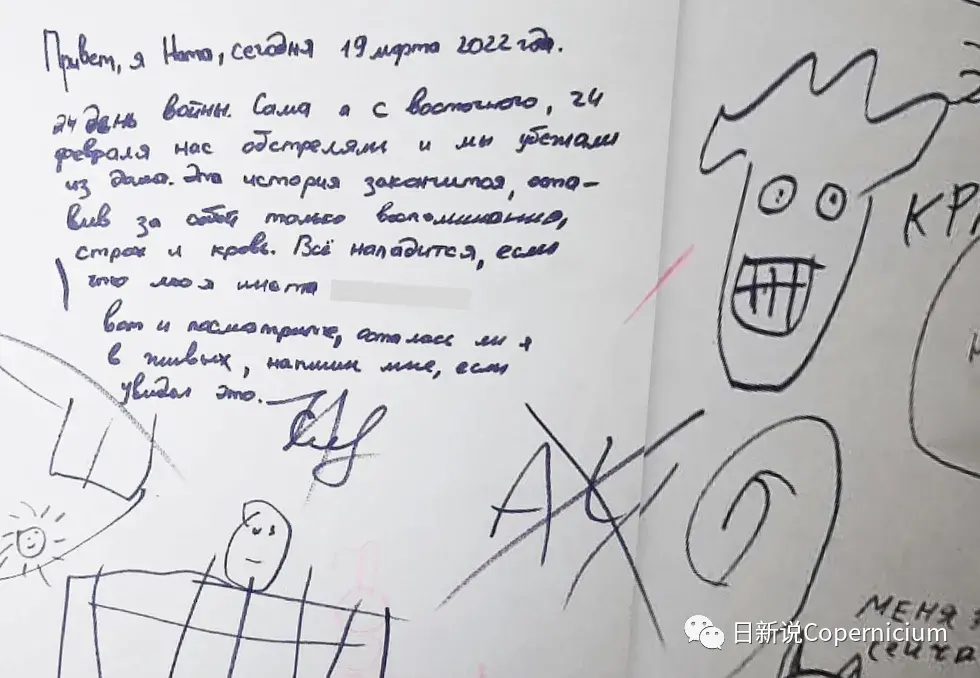 Привет, я Ната, сегодня 19 марта 2022 год.
24 день войны. Сама я с восточного, 24
февраля нас обстреляли и мы убежали
из дома. Эта история закончится, оста-
вив за собой только воспоминания,
страх и кровь. Всё наладится, если
что моя инста
вот и посмотрите, осталась ли я
в живых, напиши мне, если
увидел это.
АС
КР
МЕНЯ З
сейча
日新说Copernicium